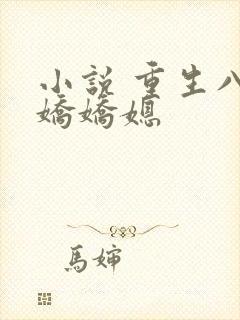 小說 重生八
嬌嬌媳
馬嬸